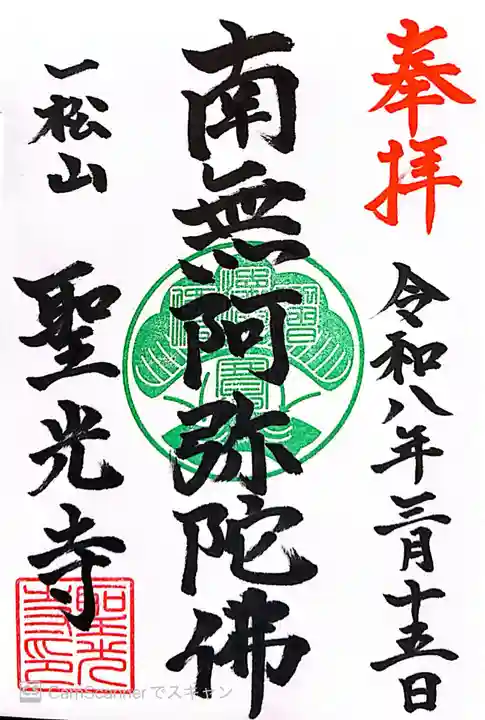 奉拝
令和八年三月十五日
南無阿弥陀佛
一松山
聖光寺
聖光寺印
CamScannerでスキャン